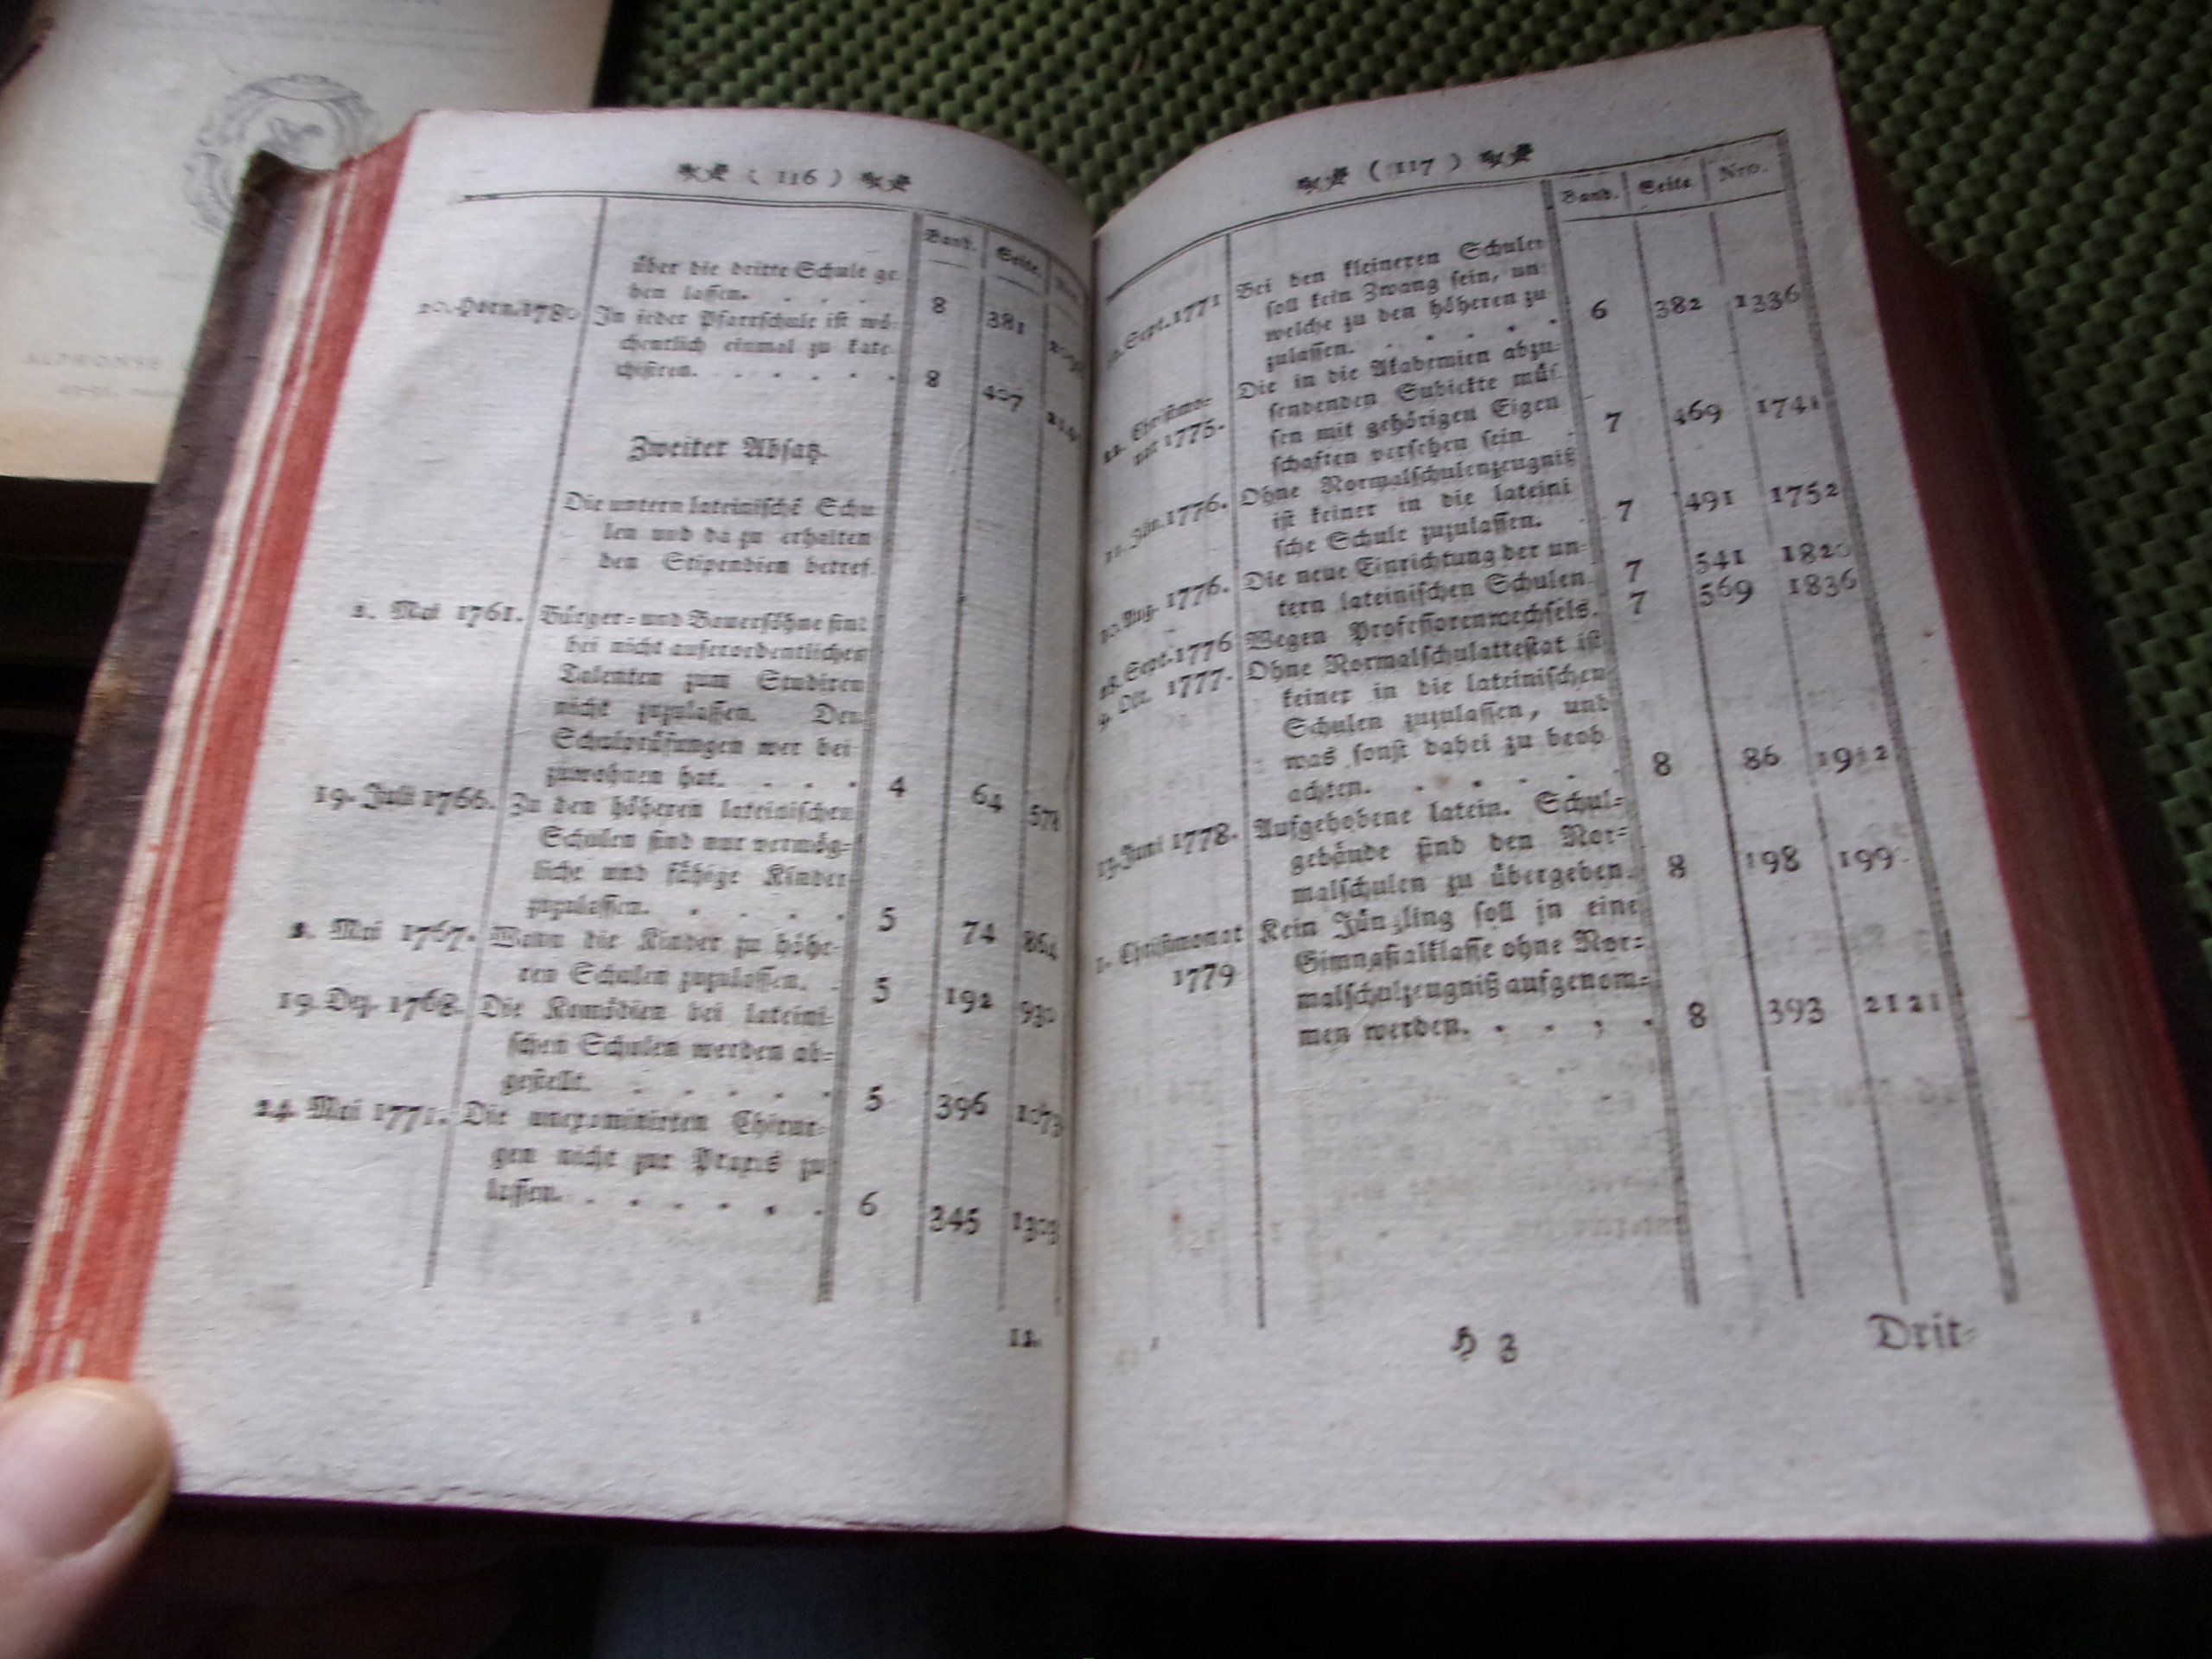 ALPHONSE
( 116 )
Band. Seite.
über die dritte Schule ge-
ben lassen. . . . . 8 381
20. Horn. 1780 In jeder Pfarrschule ist wö-
chentlich einmal zu kate-
chisiren. . . . . . . 8 407
Zweiter Absatz.
Die untern lateinischē Schu
len und da zu erhalten
den Stipendien betref.
2. Mai 1761. Bürger- und Bauersöhne sind
bei nicht auserordentlichen
Talenten zum Studiren
nicht zuzulassen. Den
Schulprüfungen wer bei
zuwohnen hat. . . . . 4 64 578
19. Juli 1766. Zu den höheren lateinischen
Schulen sind nur vermög-
liche und fähige Kinder
zuzulassen. . . . . 5 74 864
2. Mai 1767. Wann die Kinder zu höhe-
ren Schulen zuzulassen. . 5 192 930
19. Dez. 1768. Die Komödien bei lateini-
schen Schulen werden ab-
gestellt. . . . . . 5 396 1073
24. Mai 1771. Die unexaminirten Chirur-
gen nicht zur Praxis zu
lassen. . . . . . . 6 345 1303
12.
( 117 )
Band. Seite Nro.
Sept. 1771 Bei den kleineren Schulen
soll kein Zwang sein, un-
welche zu den höheren zu
zulassen. . . . . . 6 382 1336
12. Christmo- Die in die Akademien abzu-
nat 1775. sendenden Subjekte müs-
sen mit gehörigen Eigen
schaften versehen sein. . 7 469 1741
11. Jän. 1776. Ohne Normalschulenzeugniß
ist keiner in die lateini
sche Schule zuzulassen. . 7 491 1752
10. Aug. 1776. Die neue Einrichtung der un-
tern lateinischen Schulen. 7 541 1820
28. Sept. 1776 Wegen Professorenwechsels. 7 569 1836
9. 1777. Ohne Normalschulattestat ist
keiner in die lateinischen
Schulen zuzulassen, und
was sonst dabei zu beob
achten. . . . . . 8 86 1912
13. Juni 1778. Aufgehobene latein. Schul-
gebäude sind den Nor-
malschulen zu übergeben. 8 198 199
1. Christmonat Kein Jüngling soll in eine
1779 Gimnasialklasse ohne Nor-
malschulzeugniß aufgenom-
men werden. . . . . 8 393 2121
H 3
Drit-